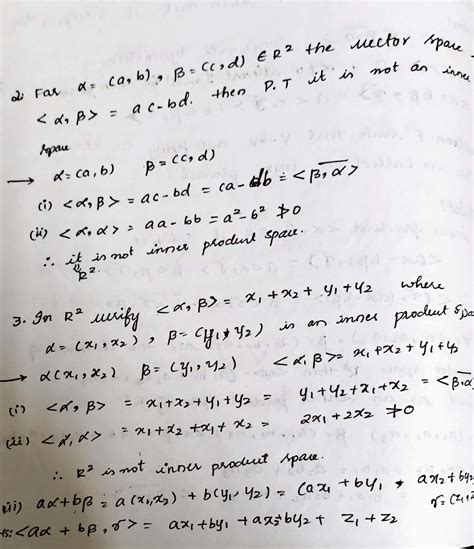 2. For α = (a, b), β = (c, d) ∈ R² the vector space
< α, β > = ac - bd. then P.T it is not an inner
space
→ α = (a, b)   β = (c, d)
(i) < α, β > = ac - bd = ca - db = < \overline{β, α} >
(ii) < α, α > = aa - bb = a² - b² ≯ 0
∴ it is not inner product space.
R².
3. In R² verify < α, β > = x₁ + x₂ + y₁ + y₂ where
α = (x₁, x₂), β = (y₁, y₂) is an inner product
→ α(x₁, x₂)   β = (y₁, y₂)   < α, β > = x₁ + x₂ + y₁ + y₂
(i) < α, β > = x₁ + x₂ + y₁ + y₂ = y₁ + y₂ + x₁ + x₂ = < \overline{β, α}
(ii) < α, α > = x₁ + x₂ + x₁ + x₂ = 2x₁ + 2x₂ ≯ 0
∴ R² is not inner product space.
iii) aα + bβ = a(x₁, x₂) + b(y₁, y₂) = (ax₁ + by₁, ax₂ + by₂
< aα + bβ, r > = ax₁ + by₁ + ax₂ + by₂ + z₁ + z₂